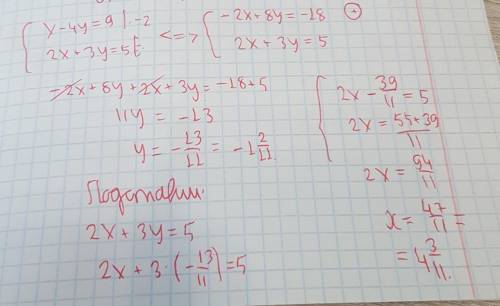 { x - 4y = 9 | · -2
{ 2x + 3y = 5 <=> { -2x + 8y = -18 (+)
{ 2x + 3y = 5
-2x + 8y + 2x + 3y = -18 + 5
11y = -13
y = -13/11 = -1 2/11
Подставим:
2x + 3y = 5
2x + 3 · (-13/11) = 5
{ 2x - 39/11 = 5
2x = 55+39/11
2x = 94/11
x = 47/11 =
= 4 3/11